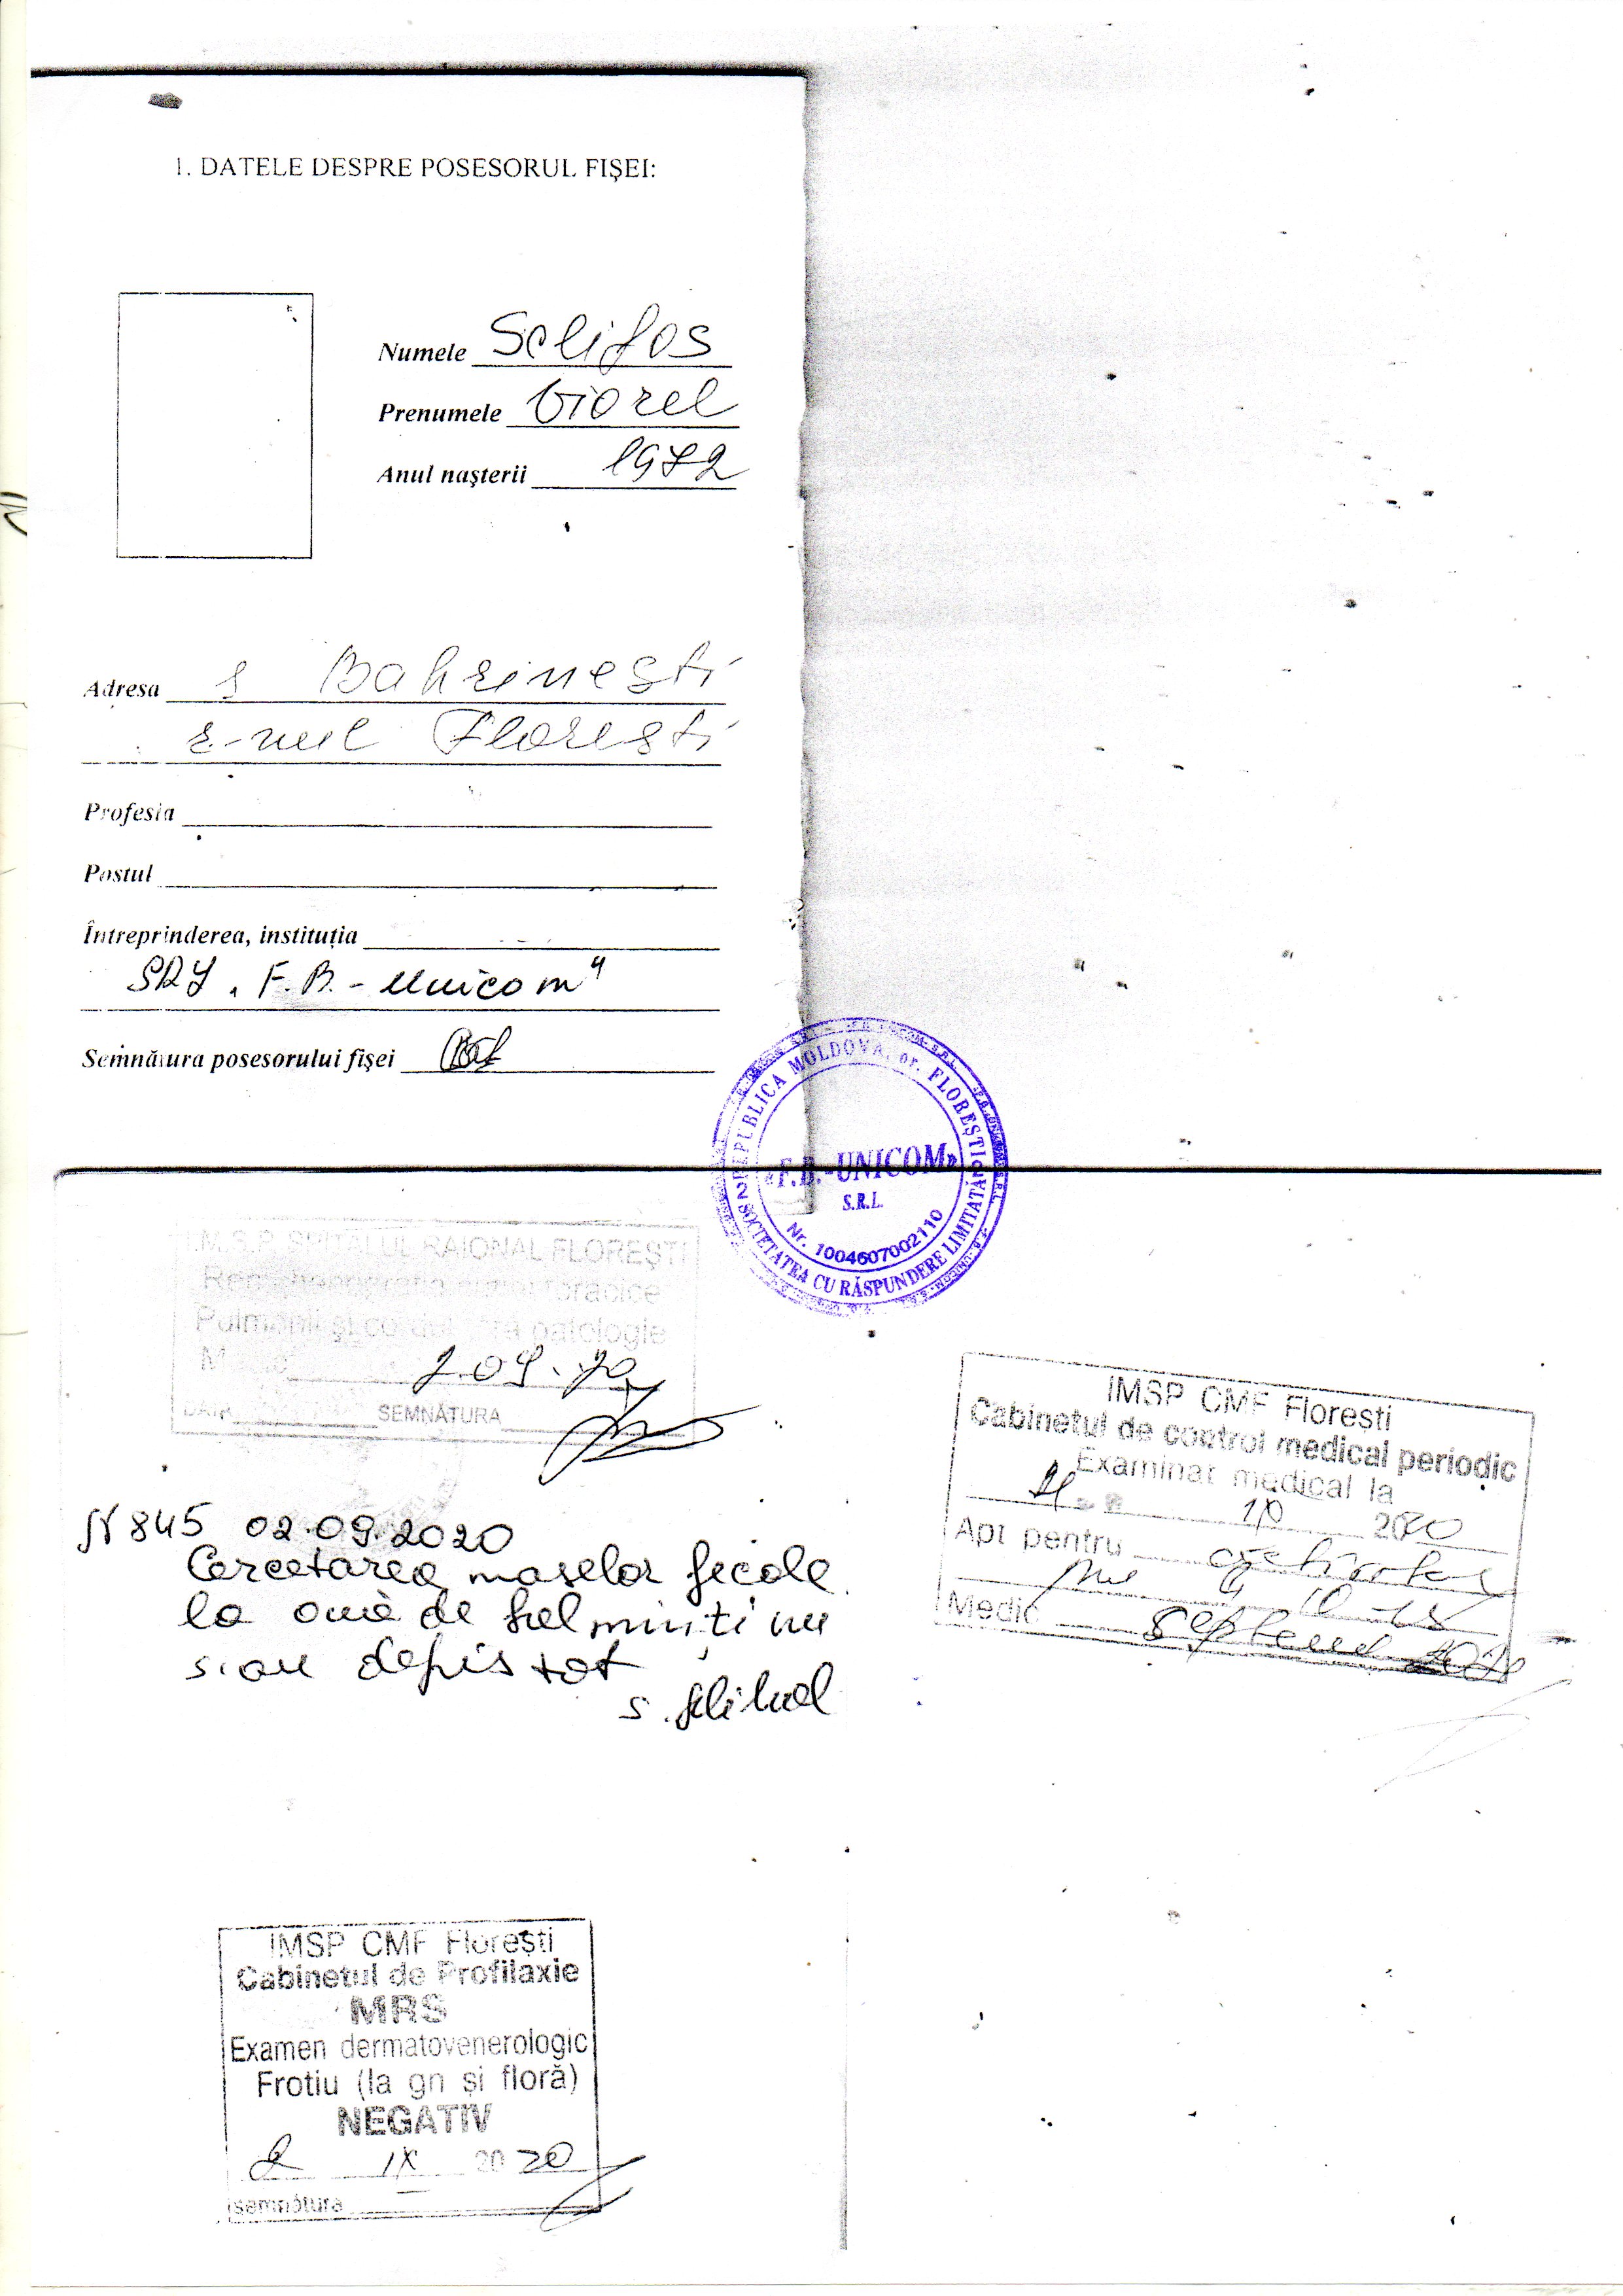 1. DATELE DESPRE POSESORUL FIŞEI:
Numele Selifos
Prenumele Viorel
Anul naşterii 1972
Adresa s Bahrinești
r-nul Florești
Profesia
Postul
Întreprinderea, instituţia
SRL "F.B.-Unicom"
Semnătura posesorului fişei
REPUBLICA MOLDOVA, or. FLOREŞTI
SOCIETATEA CU RĂSPUNDERE LIMITATĂ
«F.B.-UNICOM»
S.R.L.
Nr. 1004607002110
I.M.S.P. SPITALUL RAIONAL FLOREŞTI
toracice
Pulmonii şi cordul fără patologie
2.09.20
DATA SEMNĂTURA
N 845 02.09.2020
Cercetarea maselor fecale
la ouă de helminți nu
s-au depistat
IMSP CMF Floreşti
Cabinetul de control medical periodic
Examinat medical la
10 2020
Apt pentru
Medic
IMSP CMF Floreşti
Cabinetul de Profilaxie
MRS
Examen dermatovenerologic
Frotiu (la gn şi floră)
NEGATIV
2 IX 2020
semnătura